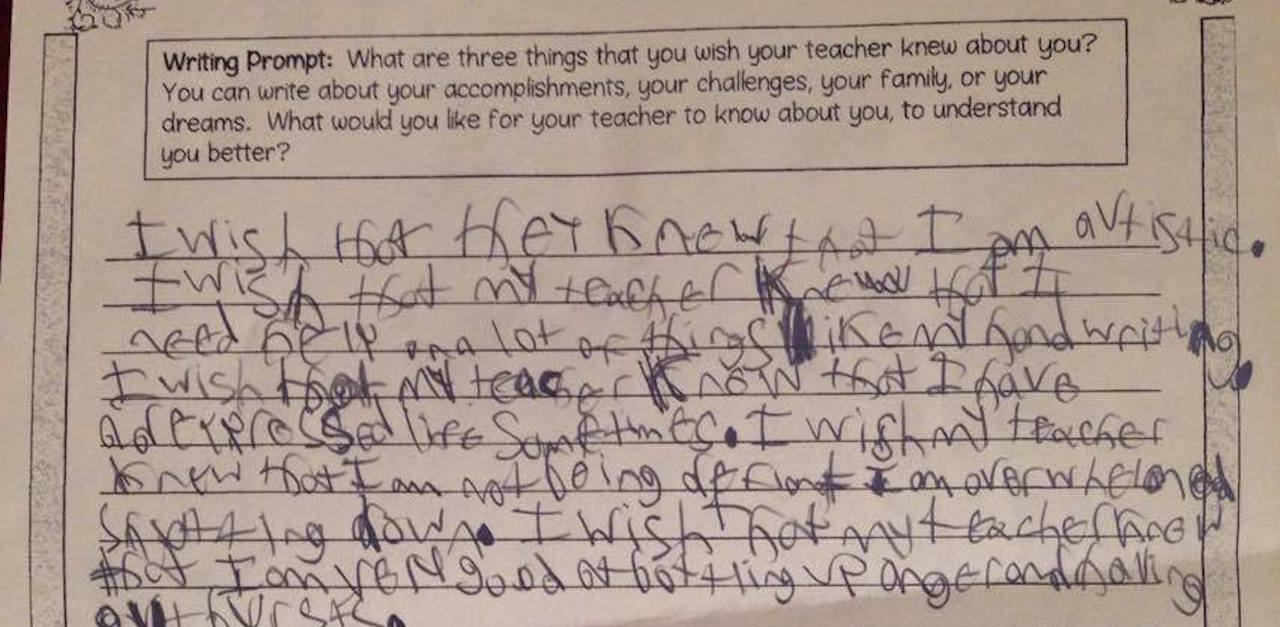 Writing Prompt: What are three things that you wish your teacher knew about you?
You can write about your accomplishments, your challenges, your family, or your
dreams. What would you like for your teacher to know about you, to understand
you better?
I wish that they knew that I am autistic.
I wish that my teacher knew that I
need help on a lot of things like my handwriting.
I wish that my teacher know that I have
a depressed life sometimes. I wish my teacher
knew that I am not being defiant I am overwhelmed
shutting down. I wish that my teacher know
that I am very good at bottling up anger and having
outbursts.